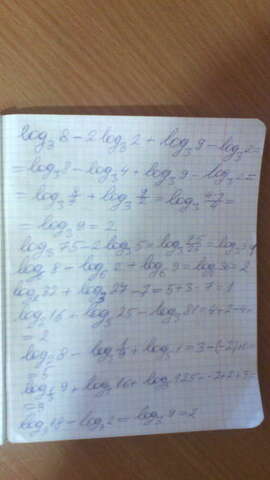 log₃8 - 2log₃2 + log₃9 - log₃2 =
= log₃8 - log₃4 + log₃9 - log₃2 =
= log₃ + log₃ 9/2 = log₃
= log₃9 = 2
log₃75 - 2log₃5 = log₃ 75/25 = log₃3 = 1
log₆8 - log₆2 + log₆9 = log₆36 = 2
log₂32 + log₃27 - 7 = 5 + 3 - 7 = 1
log₂16 + log₅25 - log₃81 = 4 + 2 - 4 =
= 2
log₂8 - + = 3 - (-2) +
= 5
9 + 16 + log₅125 = -2 + 2 + 3 =
= 3
log₃18 - log₃2 = log₃9 = 2